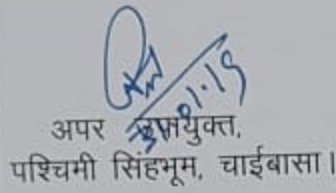 अपर उपायुक्त,
पश्चिमी सिंहभूम, चाईबासा।